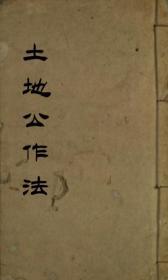 土地公作法